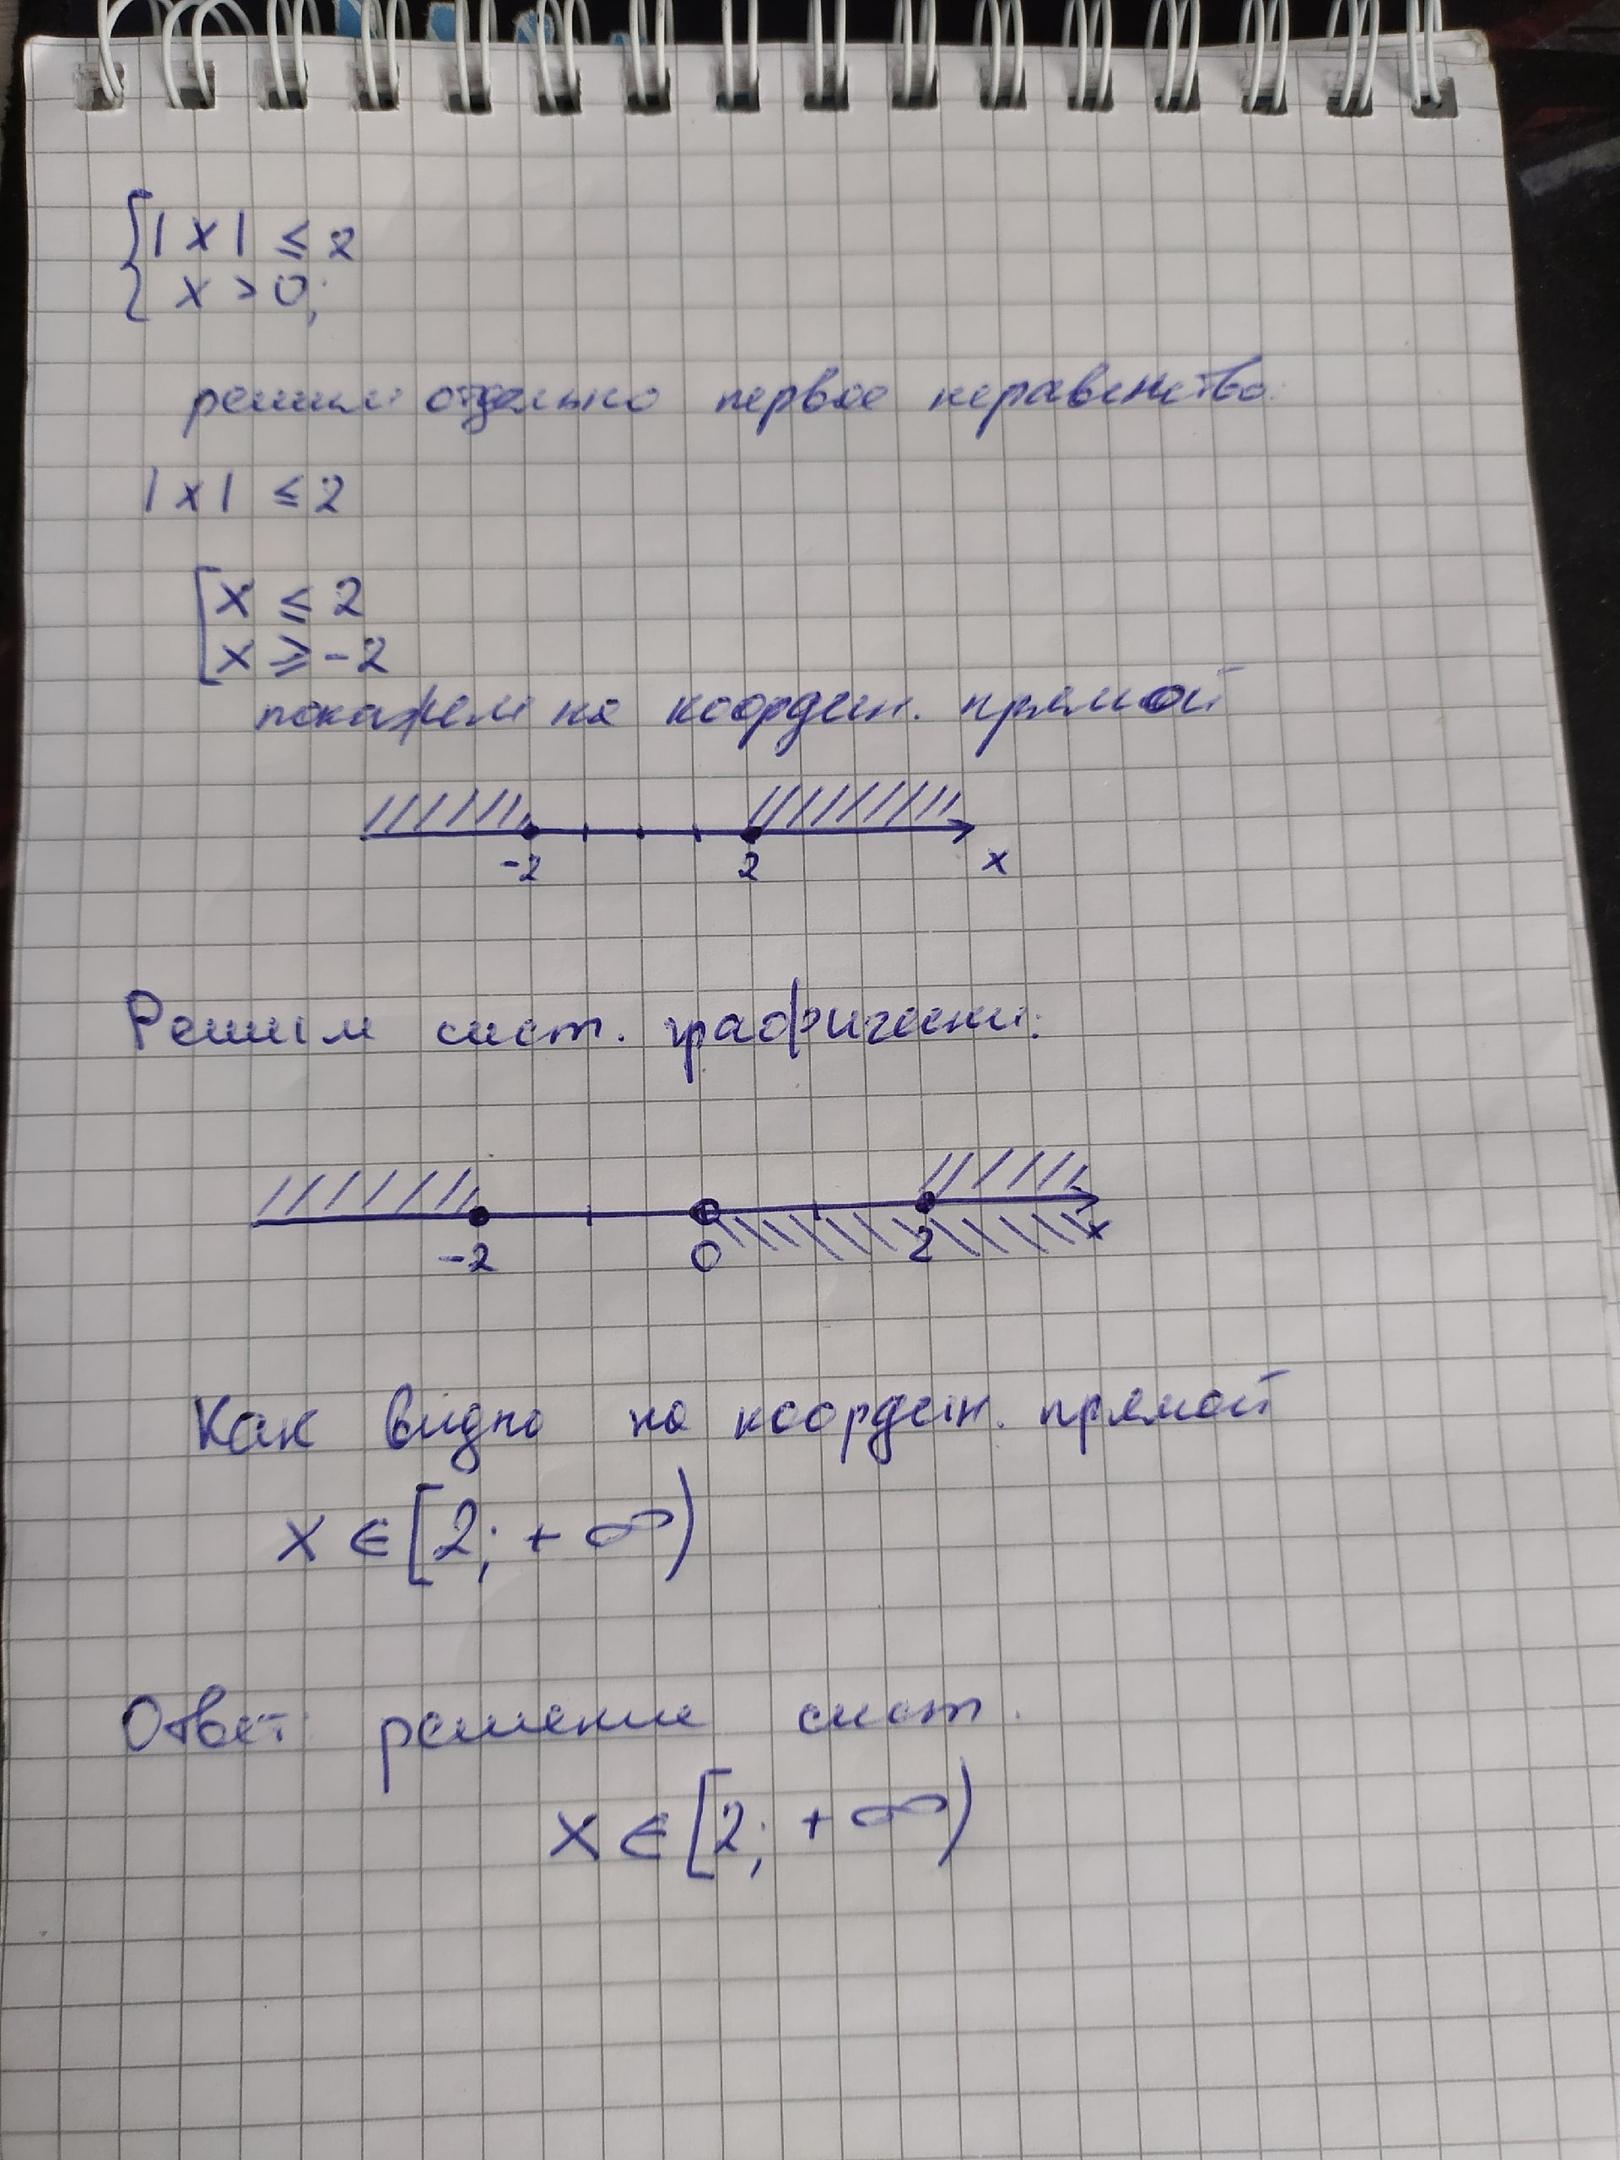 { |x| ≤ 2
{ x > 0;
решим отдельно первое неравенство:
|x| ≤ 2
[ x ≤ 2
[ x ≥ -2
покажем на коордын. прямой
-2 2 x
Решим сист. графически:
-2 0 2 x
Как видно на коордын. прямой
x ∈ [2; + ∞)
Ответ: решение сист.
x ∈ [2; + ∞)